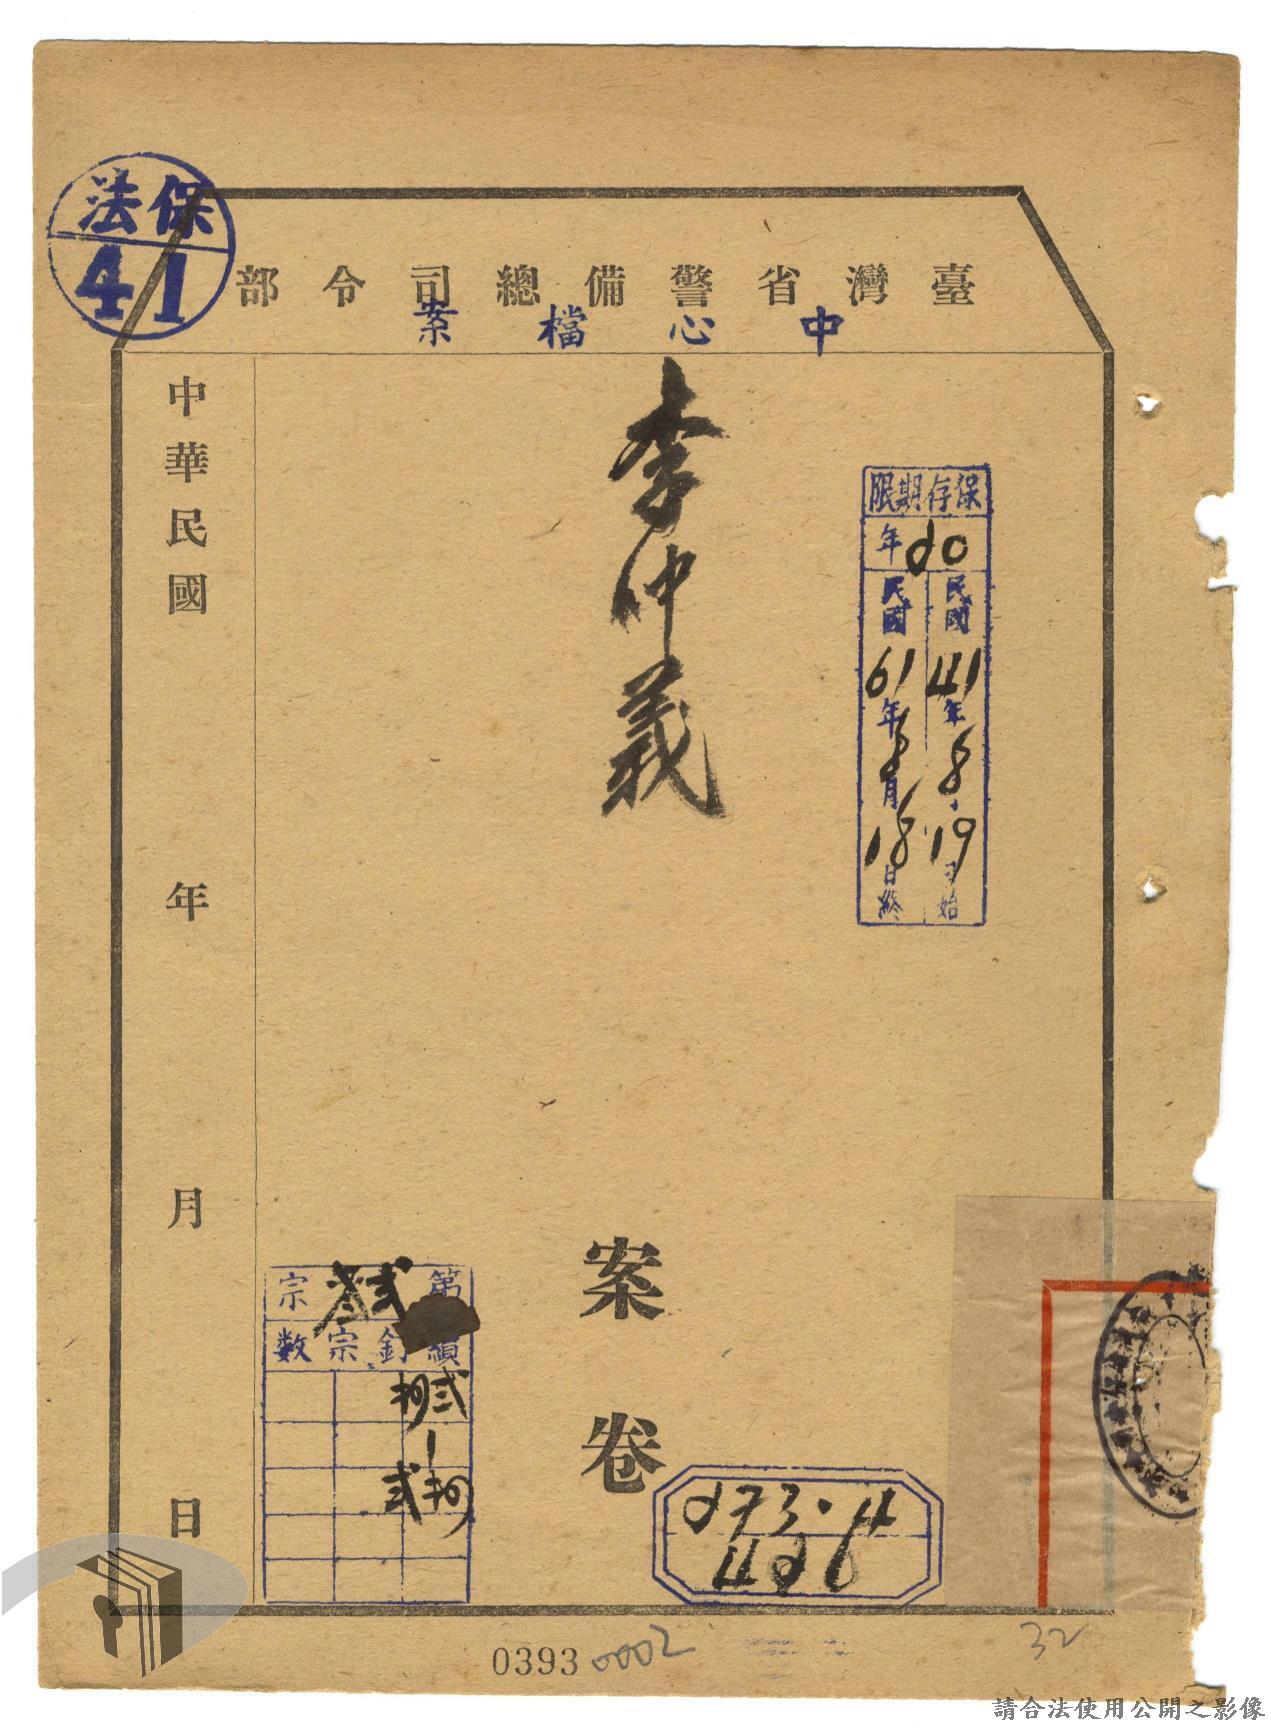 保法
41
臺灣省警備總司令部
中心檔案
李仲義
案卷
保存期限
20年
民國41年8月19日始
民國61年8月18日終
中華民國 年 月 日
第貳宗
續釘宗數
273.4
4026
0393
0002
32
請合法使用公開之影像